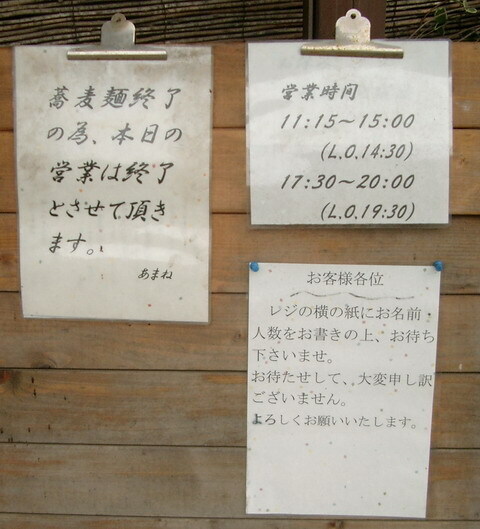 蕎麦麺終了
の為、本日の
営業は終了
とさせて頂き
ます。
あまね
営業時間
11:15～15:00
(L.O.14:30)
17:30～20:00
(L.O.19:30)
お客様各位
レジの横の紙にお名前
人数をお書きの上、お待ち
下さいませ。
お待たせして、、大変申し訳
ございません。
よろしくお願いいたします。